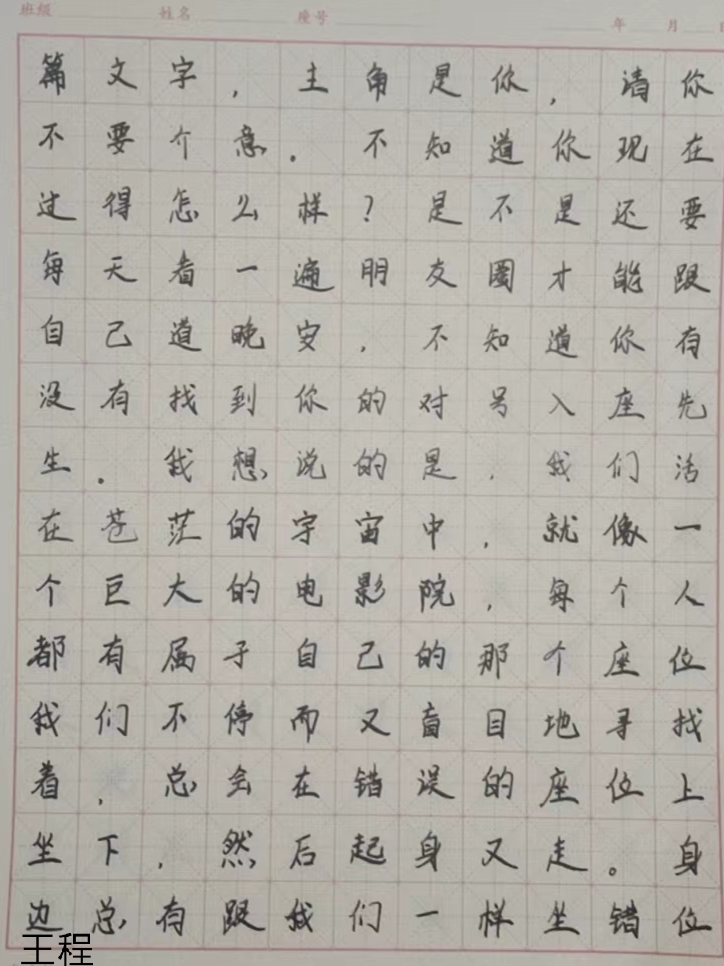 班级 姓名 座号 年 月
篇文字，主角是你，请你
不要介意。不知道你现在
过得怎么样？是不是还要
每天看一遍朋友圈才能跟
自己道晚安，不知道你有
没有找到你的对号入座先
生。我想说的是，我们活
在苍茫的宇宙中，就像一
个巨大的电影院，每个人
都有属于自己的那个座位
我们不停而又盲目地寻找
着，总会在错误的座位上
坐下，然后起身又走。身
边总有跟我们一样坐错位
王程